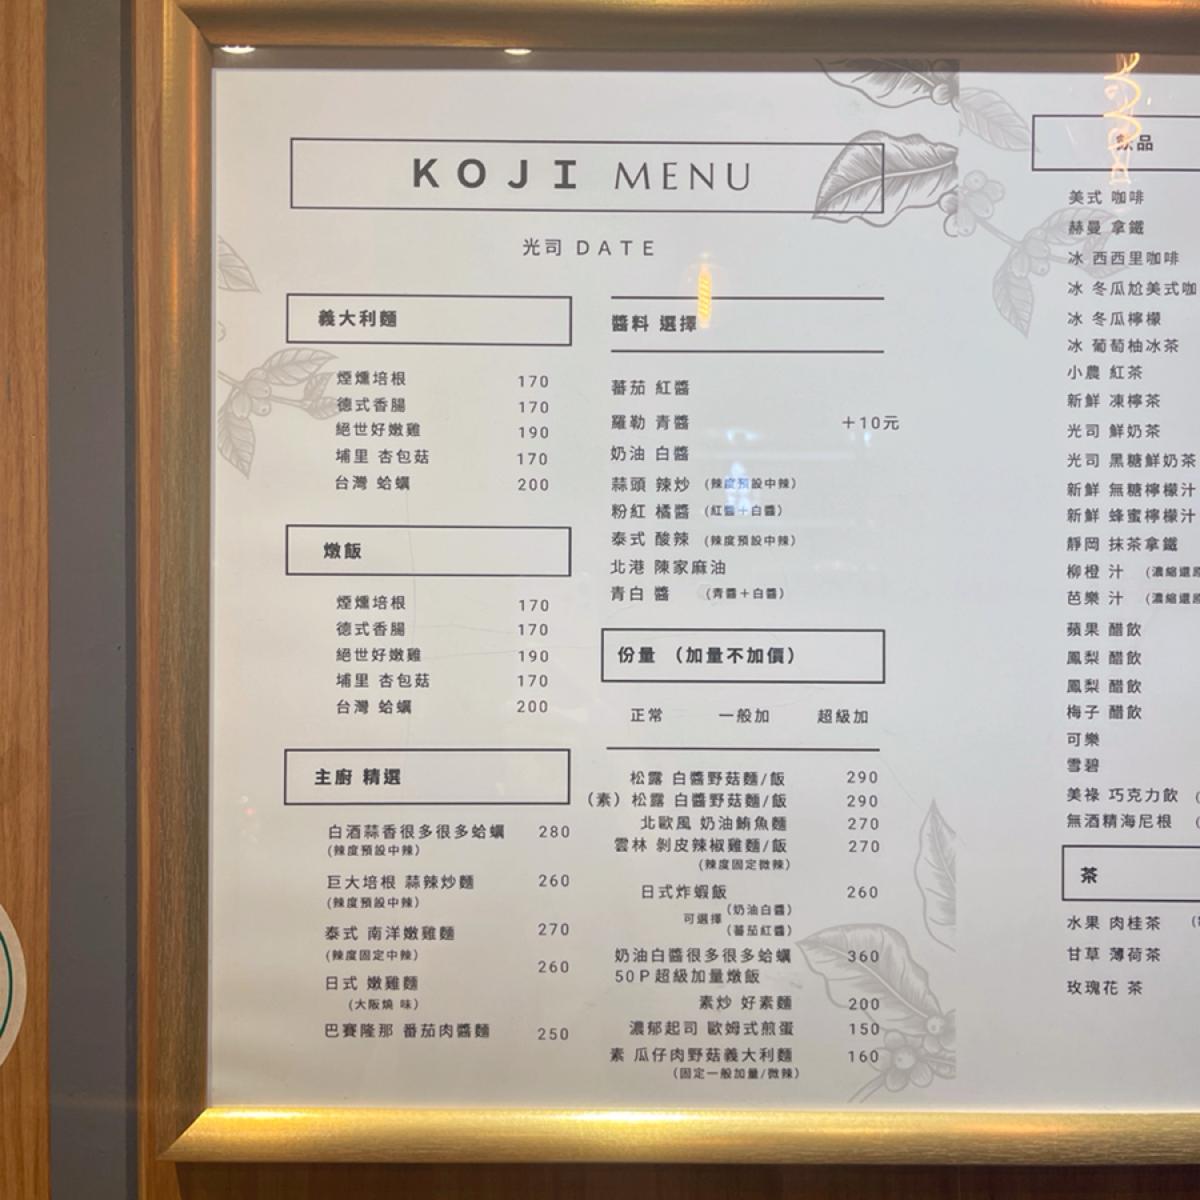 KOJI MENU
光司 DATE
義大利麵
煙燻培根 170
德式香腸 170
絕世好嫩雞 190
埔里 杏包菇 170
台灣 蛤蠣 200
燉飯
煙燻培根 170
德式香腸 170
絕世好嫩雞 190
埔里 杏包菇 170
台灣 蛤蠣 200
主廚 精選
白酒蒜香很多很多蛤蠣 280
(辣度預設中辣)
巨大培根 蒜辣炒麵 260
(辣度預設中辣)
泰式 南洋嫩雞麵 270
(辣度固定中辣)
260
日式 嫩雞麵
(大阪燒 味)
巴賽隆那 番茄肉醬麵 250
醬料 選擇
蕃茄 紅醬
羅勒 青醬 +10元
奶油 白醬
蒜頭 辣炒 (辣度預設中辣)
粉紅 橘醬 (紅醬+白醬)
泰式 酸辣 (辣度預設中辣)
北港 陳家麻油
青白 醬 (青醬+白醬)
份量 (加量不加價)
正常 一般加 超級加
松露 白醬野菇麵/飯 290
(素) 松露 白醬野菇麵/飯 290
北歐風 奶油鮪魚麵 270
雲林 剝皮辣椒雞麵/飯 270
(辣度固定微辣)
日式炸蝦飯 260
可選擇 (奶油白醬)
(蕃茄紅醬)
奶油白醬很多很多蛤蠣 360
50P超級加量燉飯
素炒 好素麵 200
濃郁起司 歐姆式煎蛋 150
素 瓜仔肉野菇義大利麵 160
(固定一般加量/微辣)
飲品
美式 咖啡
赫曼 拿鐵
冰 西西里咖啡
冰 冬瓜尬美式咖
冰 冬瓜檸檬
冰 葡萄柚冰茶
小農 紅茶
新鮮 凍檸茶
光司 鮮奶茶
光司 黑糖鮮奶茶
新鮮 無糖檸檬汁
新鮮 蜂蜜檸檬汁
靜岡 抹茶拿鐵
柳橙 汁 (濃縮還原
芭樂 汁 (濃縮還原
蘋果 醋飲
鳳梨 醋飲
鳳梨 醋飲
梅子 醋飲
可樂
雪碧
美祿 巧克力飲 (
無酒精海尼根 (
茶
水果 肉桂茶
甘草 薄荷茶
玫瑰花 茶